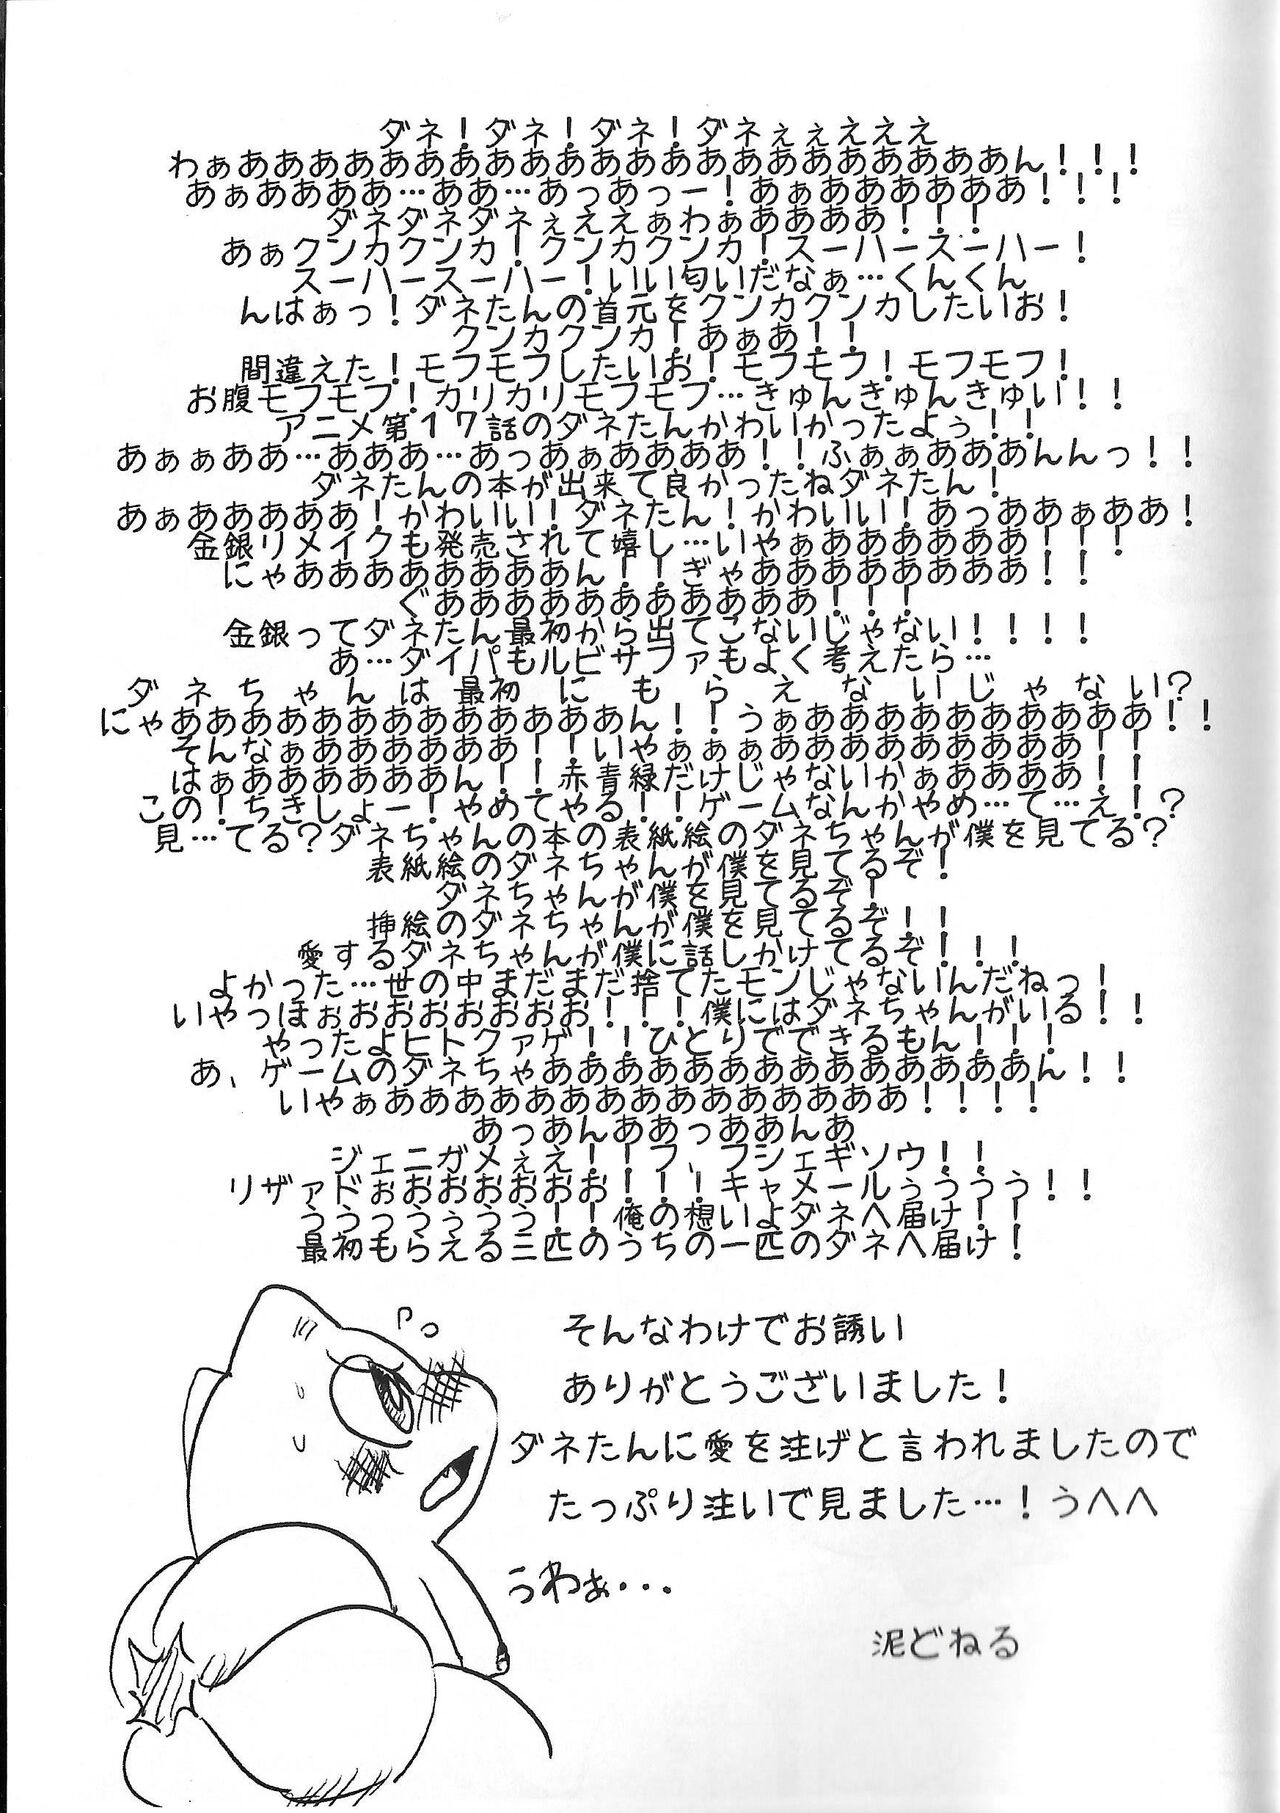 ダネ！ダネ！ダネ！ダネぇぇえええ
わぁああああああああああああああああああああああん！！！
あぁあああああ…ああ…あっあっー！あぁああああああ！！！
ダネダネダネぇええぇわぁああああ！！！
あぁクンカクンカ！クンカクンカ！スーハースーハー！
スーハースーハー！いい匂いだなぁ…くんくん
んはぁっ！ダネたんの首元をクンカクンカしたいお！
クンカクンカ！あぁあ！！
間違えた！モフモフしたいお！モフモフ！モフモフ！
お腹モフモフ！カリカリモフモフ…きゅんきゅんきゅい！！
アニメ第１７話のダネたんかわいかったよぅ！！
あぁぁああ…あああ…あっあぁああああ！！ふぁぁあああんんっ！！
ダネたんの本が出来て良かったねダネたん！
あぁあああああ！かわいい！ダネたん！かわいい！あっああぁああ！
金銀リメイクも発売されて嬉し…いやぁああああああ！！！
にゃああああああああん！！ぎゃああああああああ！！
ぐあああああああああああ！！！
金銀ってダネたん最初から出てこないじゃない！！！！
あ…ダイパもルビサファもよく考えたら…
ダネちゃんは最初にもらえないじゃない？
にゃあああああああああああああん！！うぁああああああああああ！！
そんなぁああああああ！！いやぁぁぁああああああああああ！！
はぁああああああん！！赤青緑だけじゃないかぁああああ！！
この！ちきしょー！やめてやる！！ゲームなんかやめ…て…え！？
見…てる？ダネちゃんの本の表紙絵のダネちゃんが僕を見てる？
表紙絵のダネちゃんが僕を見てるぞ！
ダネちゃんが僕を見てるぞ！
挿絵のダネちゃんが僕を見てるぞ！！
愛するダネちゃんが僕に話しかけてるぞ！！！
よかった…世の中まだまだ捨てたモンじゃないんだねっ！
いやっほぉおおおおおおお！！！僕にはダネちゃんがいる！！
やったよヒトクァゲ！！ひとりでできるもん！！！
あ、ゲームのダネちゃああああああああああああああん！！
いやぁあああああああああああああああ！！！！
あっあんああっああんあ
ジェニガメぇえ！！フ、フシェギソウ！！
リザァドぉおおおおおお！！！キャメールぅううう！！
ううっううぅうう！！俺の想いよダネへ届け！！
最初もらえる三匹のうちの一匹のダネへ届け！
そんなわけでお誘い
ありがとうございました！
ダネたんに愛を注げと言われましたので
たっぷり注いで見ました…！うへへ
うわぁ・・・
泥どねる